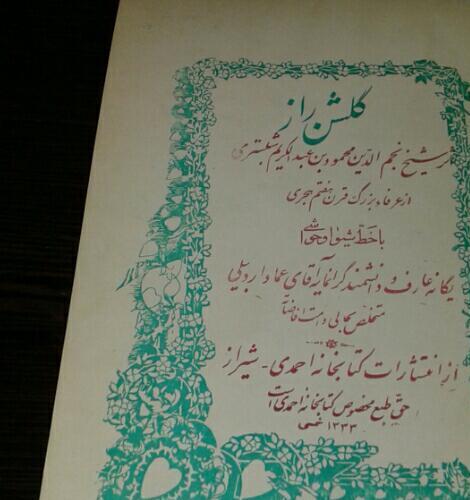 گلشن راز
اثر شیخ نجم الدین محمود بن عبدالکریم شبستری
از عرفاء بزرگ قرن هفتم هجری
با خط شیوا و حواشی
یگانه عارف و دانشمند گرانمایه آقای عماد اردبیلی
متخلص بحالی دامت افاضاته
از انتشارات کتابخانه احمدی - شیراز
حق طبع مخصوص کتابخانه احمدی است
۱۳۳۳ شمسی